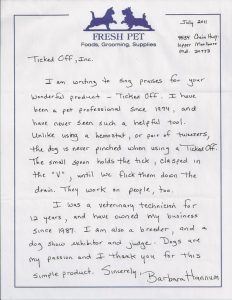 FRESH PET
Foods, Grooming, Supplies
July 2011
Upper Marlboro
Md. 20772
Ticked Off, Inc.
I am writing to sing praises for your
wonderful product - Ticked Off. I have
been a pet professional since 1974, and
have never seen such a helpful tool.
Unlike using a hemostat, or pair of tweezers,
the dog is never pinched when using a Ticked Off.
The small spoon holds the tick, clasped in
the "V", until we flick them down the
drain. They work on people, too.
I was a veterinary technician for
12 years, and have owned my business
since 1987. I am also a breeder, and a
dog show exhibitor and judge. Dogs are
my passion and I thank you for this
simple product. Sincerely, Barbara Hannum